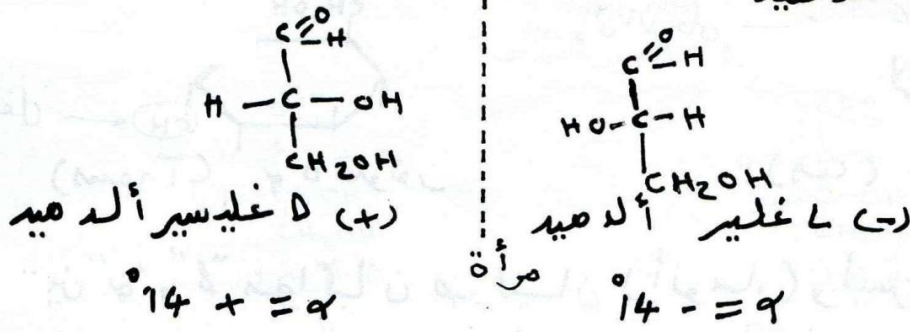 C=O H
H — C — OH
CH2OH
(+) D غليسير ألدهيد
α = + 14°
مرآة
C=O H
HO - C - H
CH2OH
(-) L غلير ألدهيد
α = - 14°